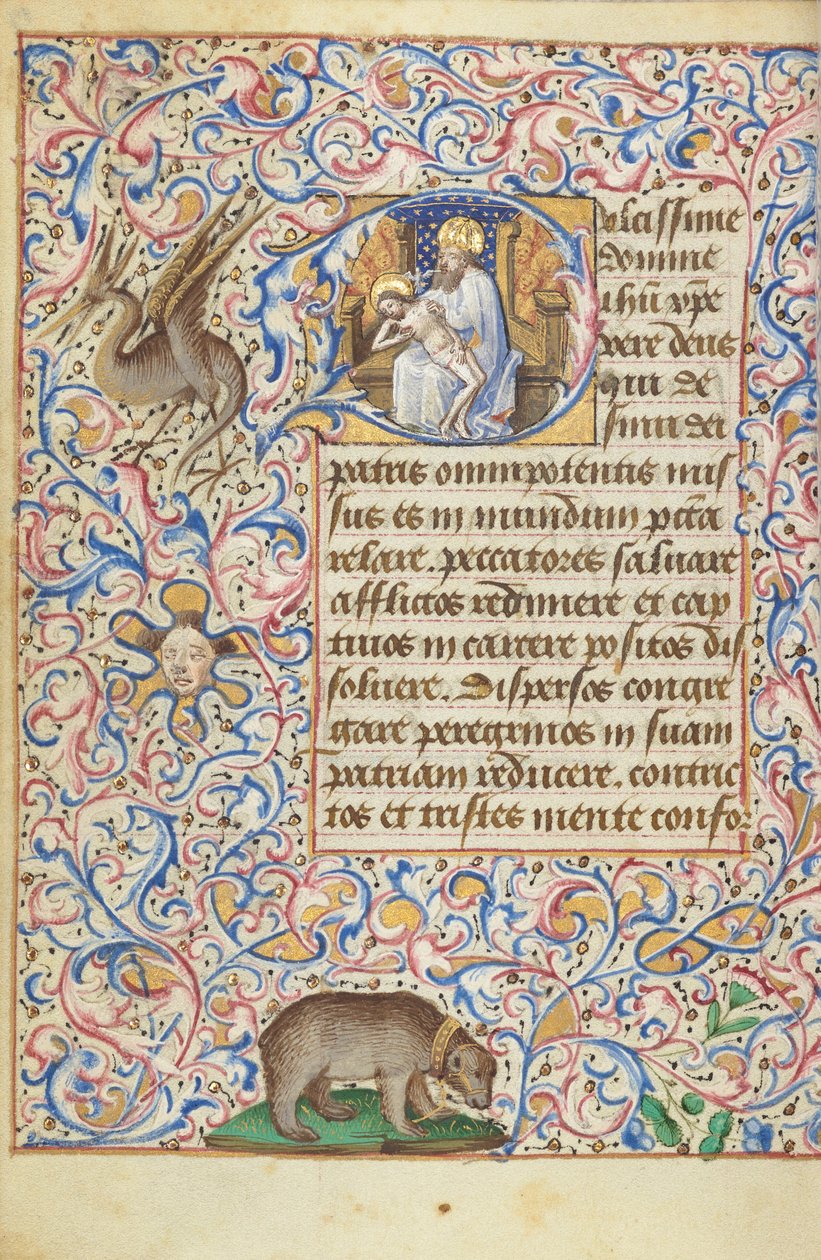 Dulcissime
domine
ihu xpe
vere deus
qui de
sinu dei
patris omnipotentis mis
sus es in mundum pcta
relaxare. peccatores saluare
afflictos redimere et cap
tiuos in carcere positos dis
soluere. Dispersos congre
gare peregrinos in suam
patriam reducere. contric
tos et tristes mente confor